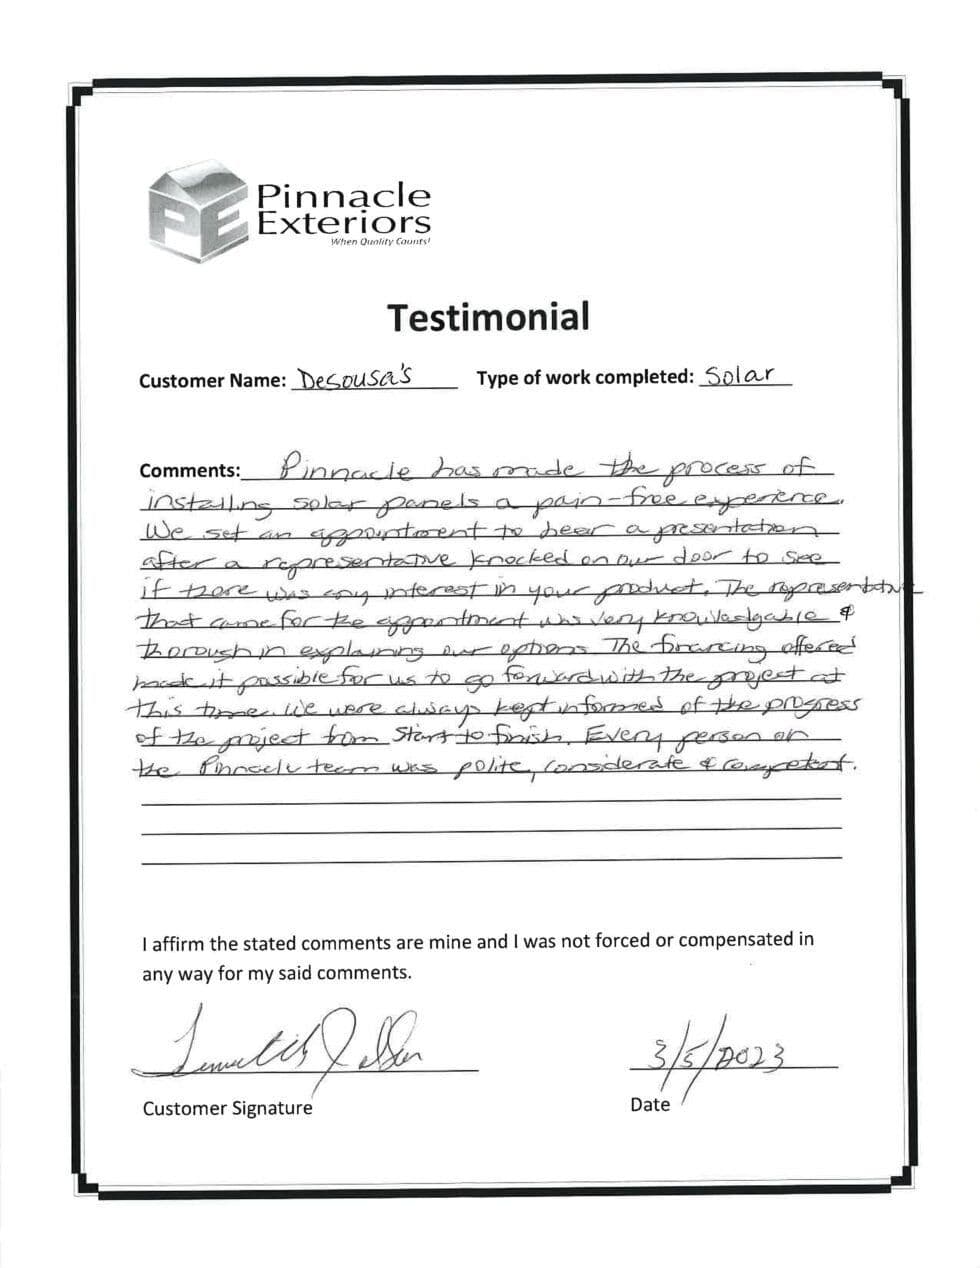 PE
Pinnacle
Exteriors
When Quality Counts!
Testimonial
Customer Name: DeSousa's Type of work completed: Solar
Comments: Pinnacle has made the process of
installing solar panels a pain-free experience.
We set an appointment to hear a presentation
after a representative knocked on our door to see
if there was any interest in your product. The representative
that came for the appointment was very knowledgable &
thorough in explaining our options. The financing offered
made it possible for us to go forward with the project at
this time. We were always kept informed of the progress
of the project from start to finish. Every person on
the Pinnacle team was polite, considerate & competent.
I affirm the stated comments are mine and I was not forced or compensated in
any way for my said comments.
3/5/2023
Customer Signature Date